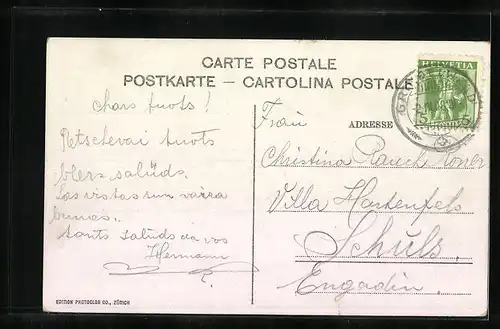 CARTE POSTALE
POSTKARTE – CARTOLINA POSTALE
HELVETIA
ADRESSE
chars tuots!
Retschevai tuots
blers salüds.
Las vistas sun vaira
bunas.
Tants salüds da vos
Hermann
Frau
Christina Rauch
Villa Hartenfels
Schuls.
Engadin.
EDITION PHOTOGLOB CO., ZÜRICH